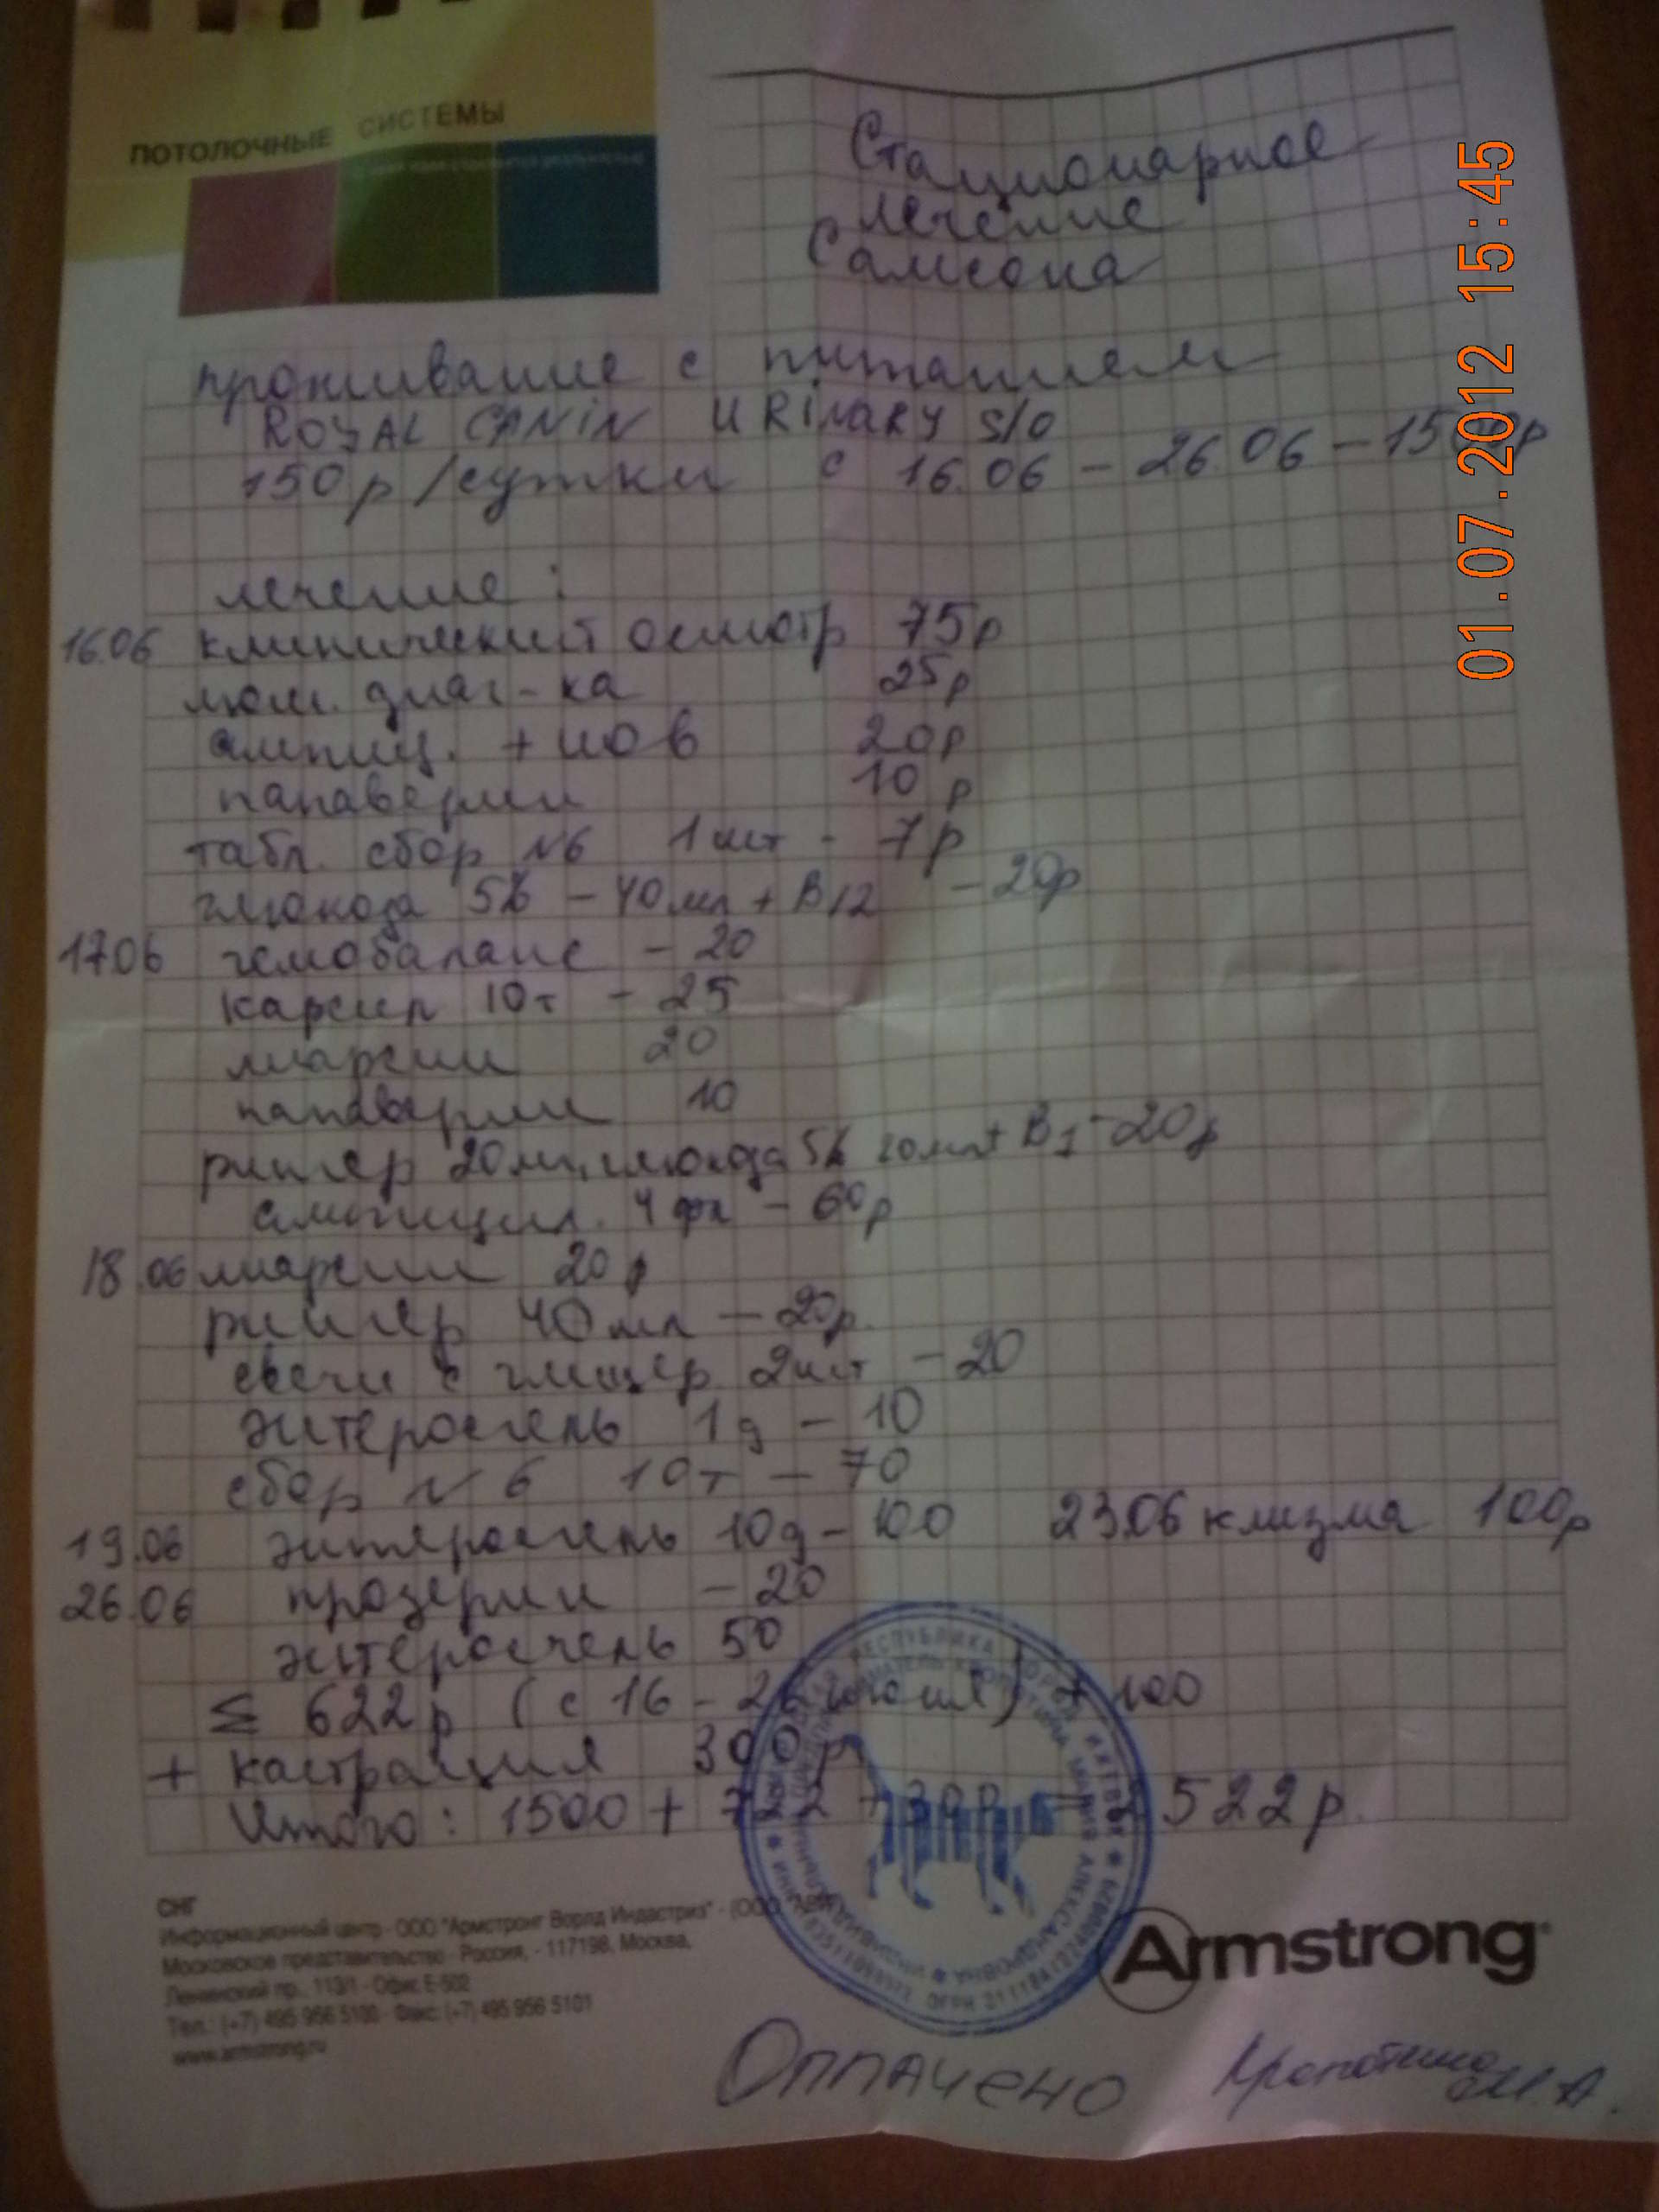 ПОТОЛОЧНЫЕ СИСТЕМЫ
Стационарное
лечение
Самсона
проживание с питанием
ROYAL CANIN URINARY S/O
150р/сутки с 16.06 – 26.06 – 1500р
лечение:
16.06 клинический осмотр 75р
люм. диаг-ка 25р
ампиц. + нов 20р
папаверин 10р
табл. сбор №6 1шт - 7р
глюкоза 5% – 40мл + В12 – 20р
17.06 гемобаланс – 20
карсил 10т – 25
лиарсин 20
папаверин 10
рингер 20мл, глюкоза 5% 20мл + В1 – 20р
ампицил. 4 фл – 60р
18.06 лиарсин 20р
рингер 40мл – 20р.
свечи с глицер. 2шт – 20
энтеросгель 1д – 10
сбор №6 10т – 70
19.06 энтеросгель 10д – 100 23.06 клизма 100р
26.06 прозерин – 20
энтеросгель 50
Σ 622р (с 16 – 26 июня) + 100
+ кастрация 300р
Итого: 1500 + 722 + 300 = 2522р.
СНГ
Информационный центр - ООО "Армстронг Ворлд Индастриз" - (ООО "АВИ")
Московское представительство - Россия, - 117198, Москва,
Ленинский пр., 113/1 - Офис Е-502
Тел.: (+7) 495 956 5100 - Факс: (+7) 495 956 5101
www.armstrong.ru
РЕСПУБЛИКА МАРИЙ
АЛЕКСАНДРОВНА
ОГРН
Armstrong
Оплачено
Кропотина М.А.
01.07.2012 15:45